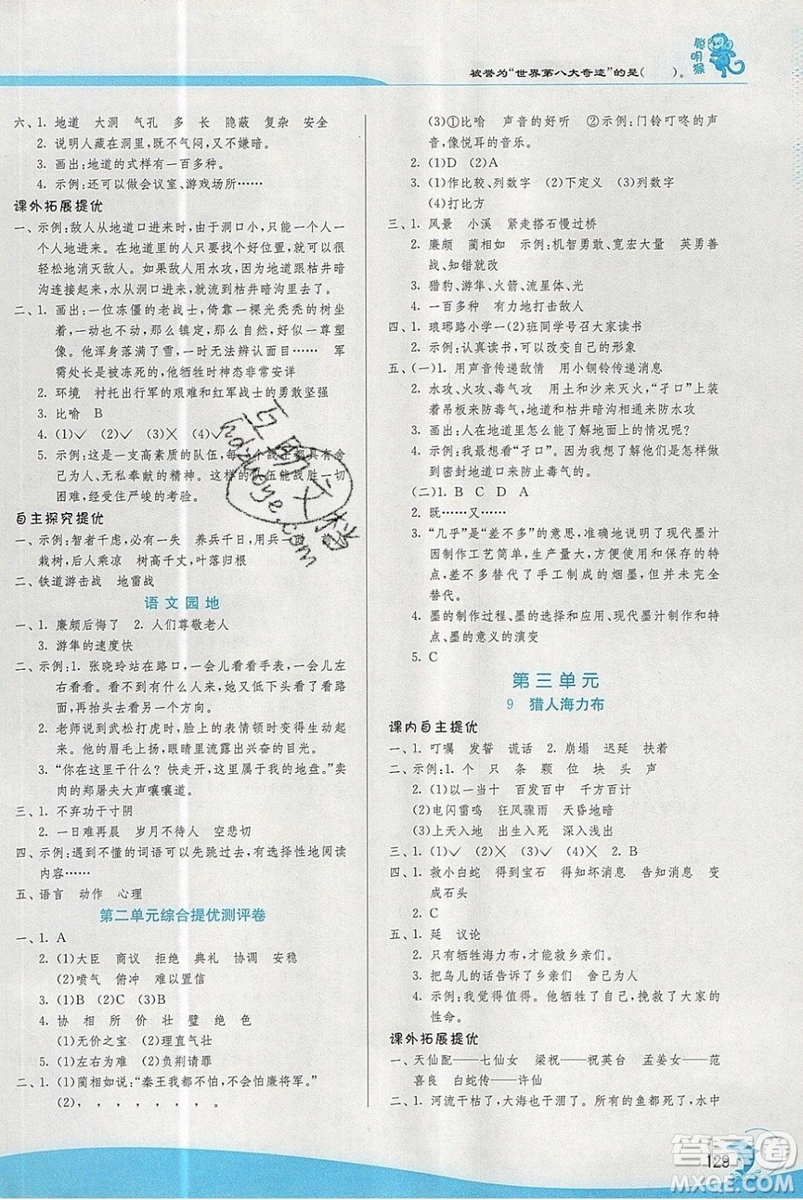 被誉为“世界第八大奇迹”的是(　　)。
聪明猴
六、1. 地道　大洞　气孔　多　长　隐蔽　复杂　安全
2. 说明人藏在洞里，既不气闷，又不嫌暗。
3. 画出：地道的式样有一百多种。
4. 示例：还可以做会议室、游戏场所……
课外拓展提优
一、示例：敌人从地道口进来时，由于洞口小，只能一个人一
个人地进来。有利于我们找个好位置，就可以很
轻松地消灭敌人。如果敌人用水攻，地道跟枯井暗
沟连接起来，水就流到枯井暗沟里了。
二、1. 画出：一位冻僵的老战士，倚靠一棵光秃秃的树坐
着，一动也不动，那么镇定，那么安详，好似一尊塑
像。他浑身落满了雪，无法辨认面目……　军
需处长是被冻死的，他却那么镇定安详。
2. 环境　衬托出行军的艰难和红军战士的勇敢坚强
3. 比喻　B
4. (1)✓　(2)✓　(3)✕　(4)✓
5. 示例：这是一支高素质的队伍，每个战士
人、无私奉献的精神。这支队伍能战胜一切
困难，经受住严峻的考验。
自主探究提优
一、示例：智者千虑，必有一失　养兵千日，用兵一
栽树，后人乘凉　树高千丈，叶落归根
二、铁道游击战　地雷战
语文园地
一、1. 廉颇后悔了　2. 人们尊敬老人
3. 游隼的速度快
二、示例：1. 张晓玲站在路口，一会儿看看手表，一会儿看
看前面，好像在等什么人。有时候有人从后面
跑过来，都没有引起她的注意。她还是一直看着前
面，又去看另一个方向。
2. 老师说到武松打虎时，脸上的表情顿时变得生动起
来，一会儿皱着眉，一会儿瞪大双眼，一会儿双眼迸
发出兴奋的目光。
3. “你在这里干什么？快走开，这是我的地盘。”卖
肉的郑屠夫大声嚷嚷道。
三、1. 不弃功于寸阴
2. 一日难再晨　岁月不待人　空悲切
四、示例：遇到不懂的词语可以先跳过去，有选择性地阅读
内容……
五、语言　动作　心理
第二单元综合提优测评卷
一、1. A
2. (1)大臣　商议　拒绝　典礼　协调　安稳
(2)喷气　俯冲　难以置信
3. (1)B　(2)C　(3)B
4. 协　相　所　价　壮　璧　绝　色
(1)无价之宝　(2)理直气壮
5. (1)左右为难　(2)负荆请罪
二、1. (1)蔺相如想：“秦王我都不怕，会怕廉将军吗？”
(2)，，，，，，。
(3)①比喻　声音的好听　②示例：门铃叮咚的声
音，像悦耳的音乐。
2. (1)D　(2)A
3. (1)作比较、列数字　(2)下定义　(3)列数字
(4)打比方
三、1. 风景　小溪　紧走搭石慢过桥
2. 廉颇　蔺相如　示例：机智勇敢、宽宏大量　英勇善
战、知错就改
3. 猎豹、游隼、火箭、流星体、光
4. 一百多种　有力地打击敌人
四、1. 琅琊路小学一(2)班同学号召大家读书
2. 示例：认真读书，可以改变自己的形象
五、(一)1. 用声音传递敌情　用小铜铃传递消息
2. 水攻、火攻、毒气攻　用土和沙来灭火，“孑口”装
吊板来防毒气，地道和枯井暗沟相连来防水攻。
3. 画出：人在地道里怎么能了解地面上的情况呢？
4. 示例：我最想看“孑口”。我想看看它是怎么做
到密封地道口来防止毒气的。
(二)1. C　C　D　A
2. 既……又……
3. “几乎”是“差不多”的意思，准确说明了现代墨汁
因制作工艺简单，生产量大，方便使用和保存的特
点，差不多代替了手工制成的烟墨，但没有完全
替代。
4. 墨的制作过程、墨的意义、油烟墨和现代墨的技
术、墨的特点、墨的意义的演变
5. C
第三单元
9　猎人海力布
课内自主提优
一、1. 叮嘱　发誓　谎话　2. 崩塌　迟延　扶着
二、示例：1. 个　只　条　颗　位　块　头　声
2. (1)以一当十　百发百中　十全十美
(2)电闪雷鸣　狂风骤雨　天昏地暗
(3)上天入地　出生入死　深入浅出
三、1. (1)✓　(2)✕　(3)✓　(4)✓
四、1. 救小白蛇　得到宝石　得知消息　告知消息　变
成石头
2. C
五、1. 延　议论
2. 示例：只有牺牲自己，才能救出乡亲们。
3. 把鸟儿的话告诉了乡亲们　舍己为人
4. 示例：我觉得值得。他牺牲了自己，挽救了大家的
性命。
课外拓展提优
一、天仙配——七仙女　梁祝——祝英台　孟姜女——范
喜良　白蛇传——许仙
二、1. 河流干枯了，大海也不宽了。所有的鱼都死了，水中
129